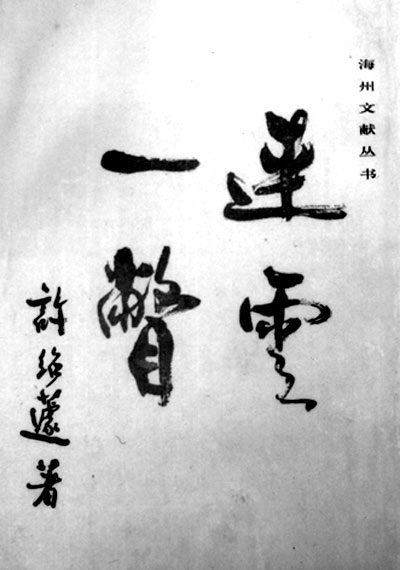 海州文献丛书
連雲
一瞥
許紹蘧著